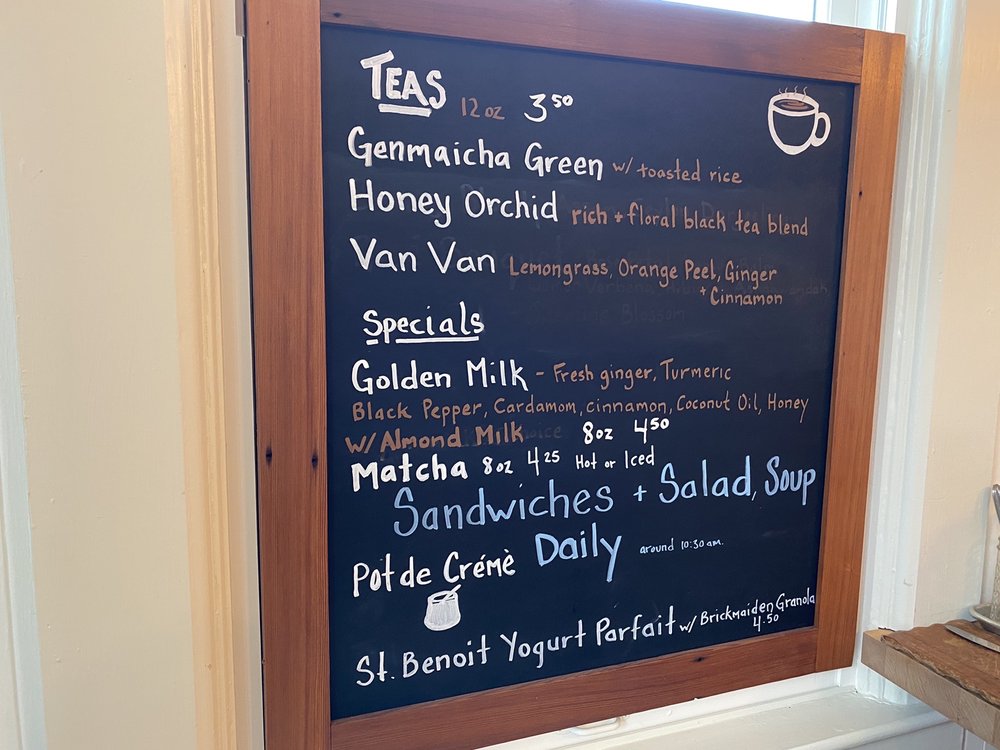 TEAS 12oz 3.50
Genmaicha Green w/ toasted rice
Honey Orchid rich + floral black tea blend
Van Van Lemongrass, Orange Peel, Ginger
+ Cinnamon
Specials
Golden Milk - Fresh ginger, Turmeric
Black Pepper, Cardamom, cinnamon, Coconut Oil, Honey
w/ Almond Milk 8oz 4.50
Matcha 8oz 4.25 Hot or Iced
Sandwiches + Salad, Soup
Daily around 10:30 am.
Pot de Crémè
St. Benoit Yogurt Parfait w/ Brickmaiden Granola
4.50